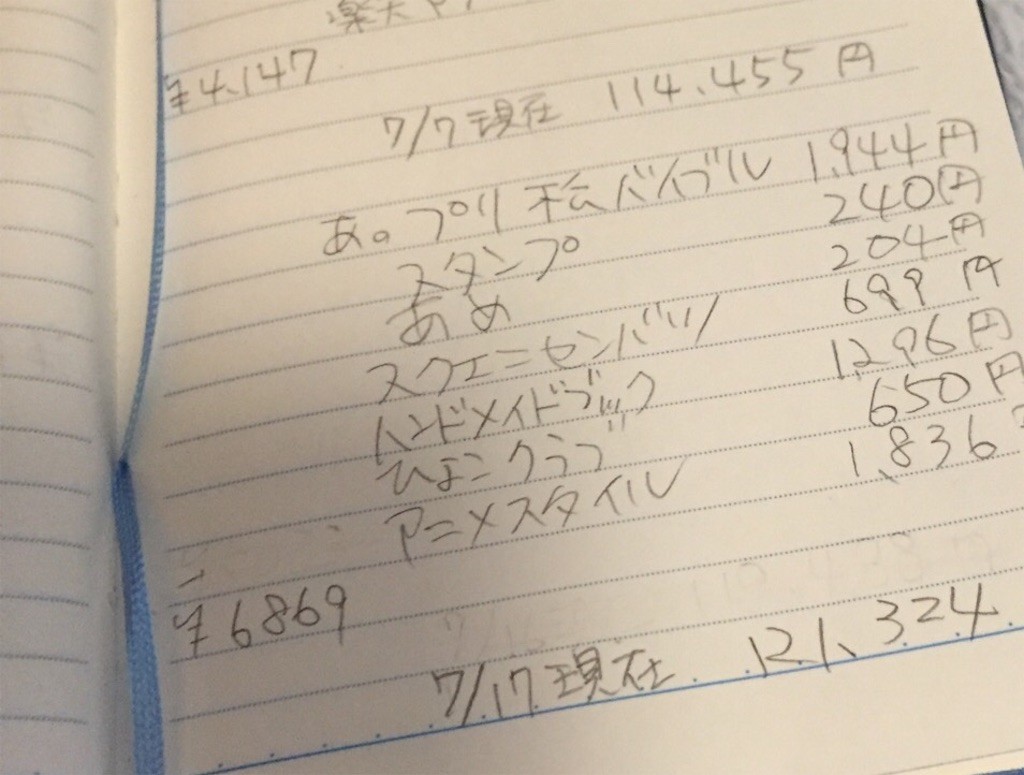 楽天
¥4,147
7/7現在 114,455円
あ。プリ 松バイブル 1,944円
スタンプ 240円
あめ 204円
スクエニセンバツ 699円
ハンドメイドブック 1,296円
ひよこクラブ 650円
アニメスタイル 1,836
¥6869
7/17現在 121,324